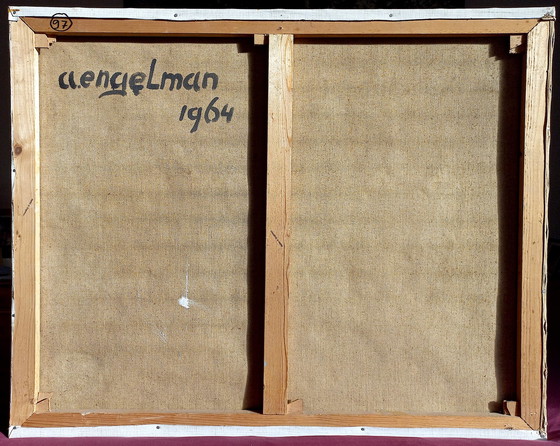 97
a.engelman
1964